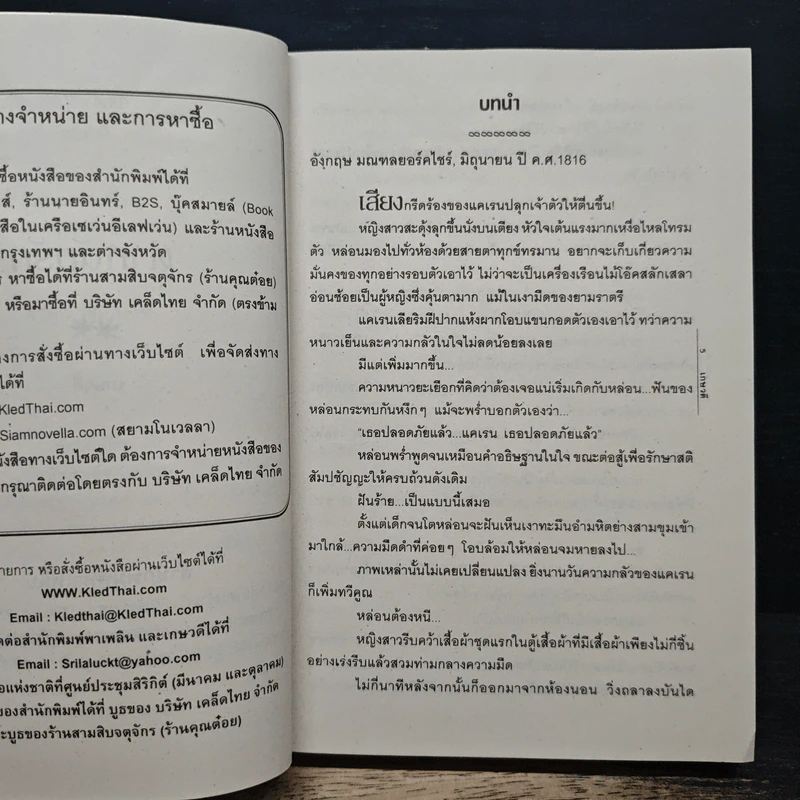 างจำหน่าย และการหาซื้อ
ซื้อหนังสือของสำนักพิมพ์ได้ที่
ส์, ร้านนายอินทร์, B2S, บุ๊คสมายล์ (Book
สือในเครือเซเว่นอีเลฟเว่น) และร้านหนังสือ
กรุงเทพฯ และต่างจังหวัด
ร หาซื้อได้ที่ร้านสามสิบจตุจักร (ร้านคุณต๋อย)
หรือมาซื้อที่ บริษัท เคล็ดไทย จำกัด (ตรงข้าม
องการสั่งซื้อผ่านทางเว็บไซต์ เพื่อจัดส่งทาง
ได้ที่
KledThai.com
Siamnovella.com (สยามโนเวลลา)
นังสือทางเว็บไซต์ใด ต้องการจำหน่ายหนังสือของ
กรุณาติดต่อโดยตรงกับ บริษัท เคล็ดไทย จำกัด
ายการ หรือสั่งซื้อหนังสือผ่านเว็บไซต์ได้ที่
WWW.KledThai.com
Email : Kledthai@KledThai.com
ดต่อสำนักพิมพ์พาเพลิน และเกษวดีได้ที่
Email : Srilaluckt@yahoo.com
อแห่งชาติที่ศูนย์ประชุมสิริกิติ์ (มีนาคม และตุลาคม)
ของสำนักพิมพ์ได้ที่ บูธของ บริษัท เคล็ดไทย จำกัด
ะบูธของร้านสามสิบจตุจักร (ร้านคุณต๋อย)
บทนำ
อังกฤษ มณฑลยอร์คไชร์, มิถุนายน ปี ค.ศ.1816
เสียงกรีดร้องของแคเรนปลุกเจ้าตัวให้ตื่นขึ้น!
หญิงสาวสะดุ้งลุกขึ้นนั่งบนเตียง หัวใจเต้นแรงมากเหงื่อไหลโทรม
ตัว หล่อนมองไปทั่วห้องด้วยสายตาทุกข์ทรมาน อยากจะเก็บเกี่ยวความ
มั่นคงของทุกอย่างรอบตัวเอาไว้ ไม่ว่าจะเป็นเครื่องเรือนไม้โอ๊คสลักเสลา
อ่อนช้อยเป็นผู้หญิงซึ่งคุ้นตามาก แม้ในเงามืดของยามราตรี
แคเรนเลียริมฝีปากแห้งผากโอบแขนกอดตัวเองเอาไว้ ทว่าความ
หนาวเย็นและความกลัวในใจไม่ลดน้อยลงเลย
มีแต่เพิ่มมากขึ้น...
ความหนาวยะเยือกที่คิดว่าต้องเจอแน่เริ่มเกิดกับหล่อน...ฟันของ
หล่อนกระทบกันหงึกๆ แม้จะพร่ำบอกตัวเองว่า...
"เธอปลอดภัยแล้ว...แคเรน เธอปลอดภัยแล้ว"
หล่อนพร่ำพูดจนเหมือนคำอธิษฐานในใจ ขณะต่อสู้เพื่อรักษาสติ
สัมปชัญญะให้ครบถ้วนดังเดิม
ฝันร้าย...เป็นแบบนี้เสมอ
ตั้งแต่เด็กจนโตหล่อนจะฝันเห็นเงาทะมึนอำมหิตย่างสามขุมเข้า
มาใกล้...ความมืดดำที่ค่อยๆ โอบล้อมให้หล่อนจมหายลงไป...
ภาพเหล่านั้นไม่เคยเปลี่ยนแปลง ยิ่งนานวันความกลัวของแคเรน
ก็เพิ่มทวีคูณ
หล่อนต้องหนี...
หญิงสาวรีบคว้าเสื้อผ้าชุดแรกในตู้เสื้อผ้าที่มีเสื้อผ้าเพียงไม่กี่ชิ้น
อย่างเร่งรีบแล้วสวมท่ามกลางความมืด
ไม่กี่นาทีหลังจากนั้นก็ออกมาจากห้องนอน วิ่งถลาลงบันได
5
เกษวดี